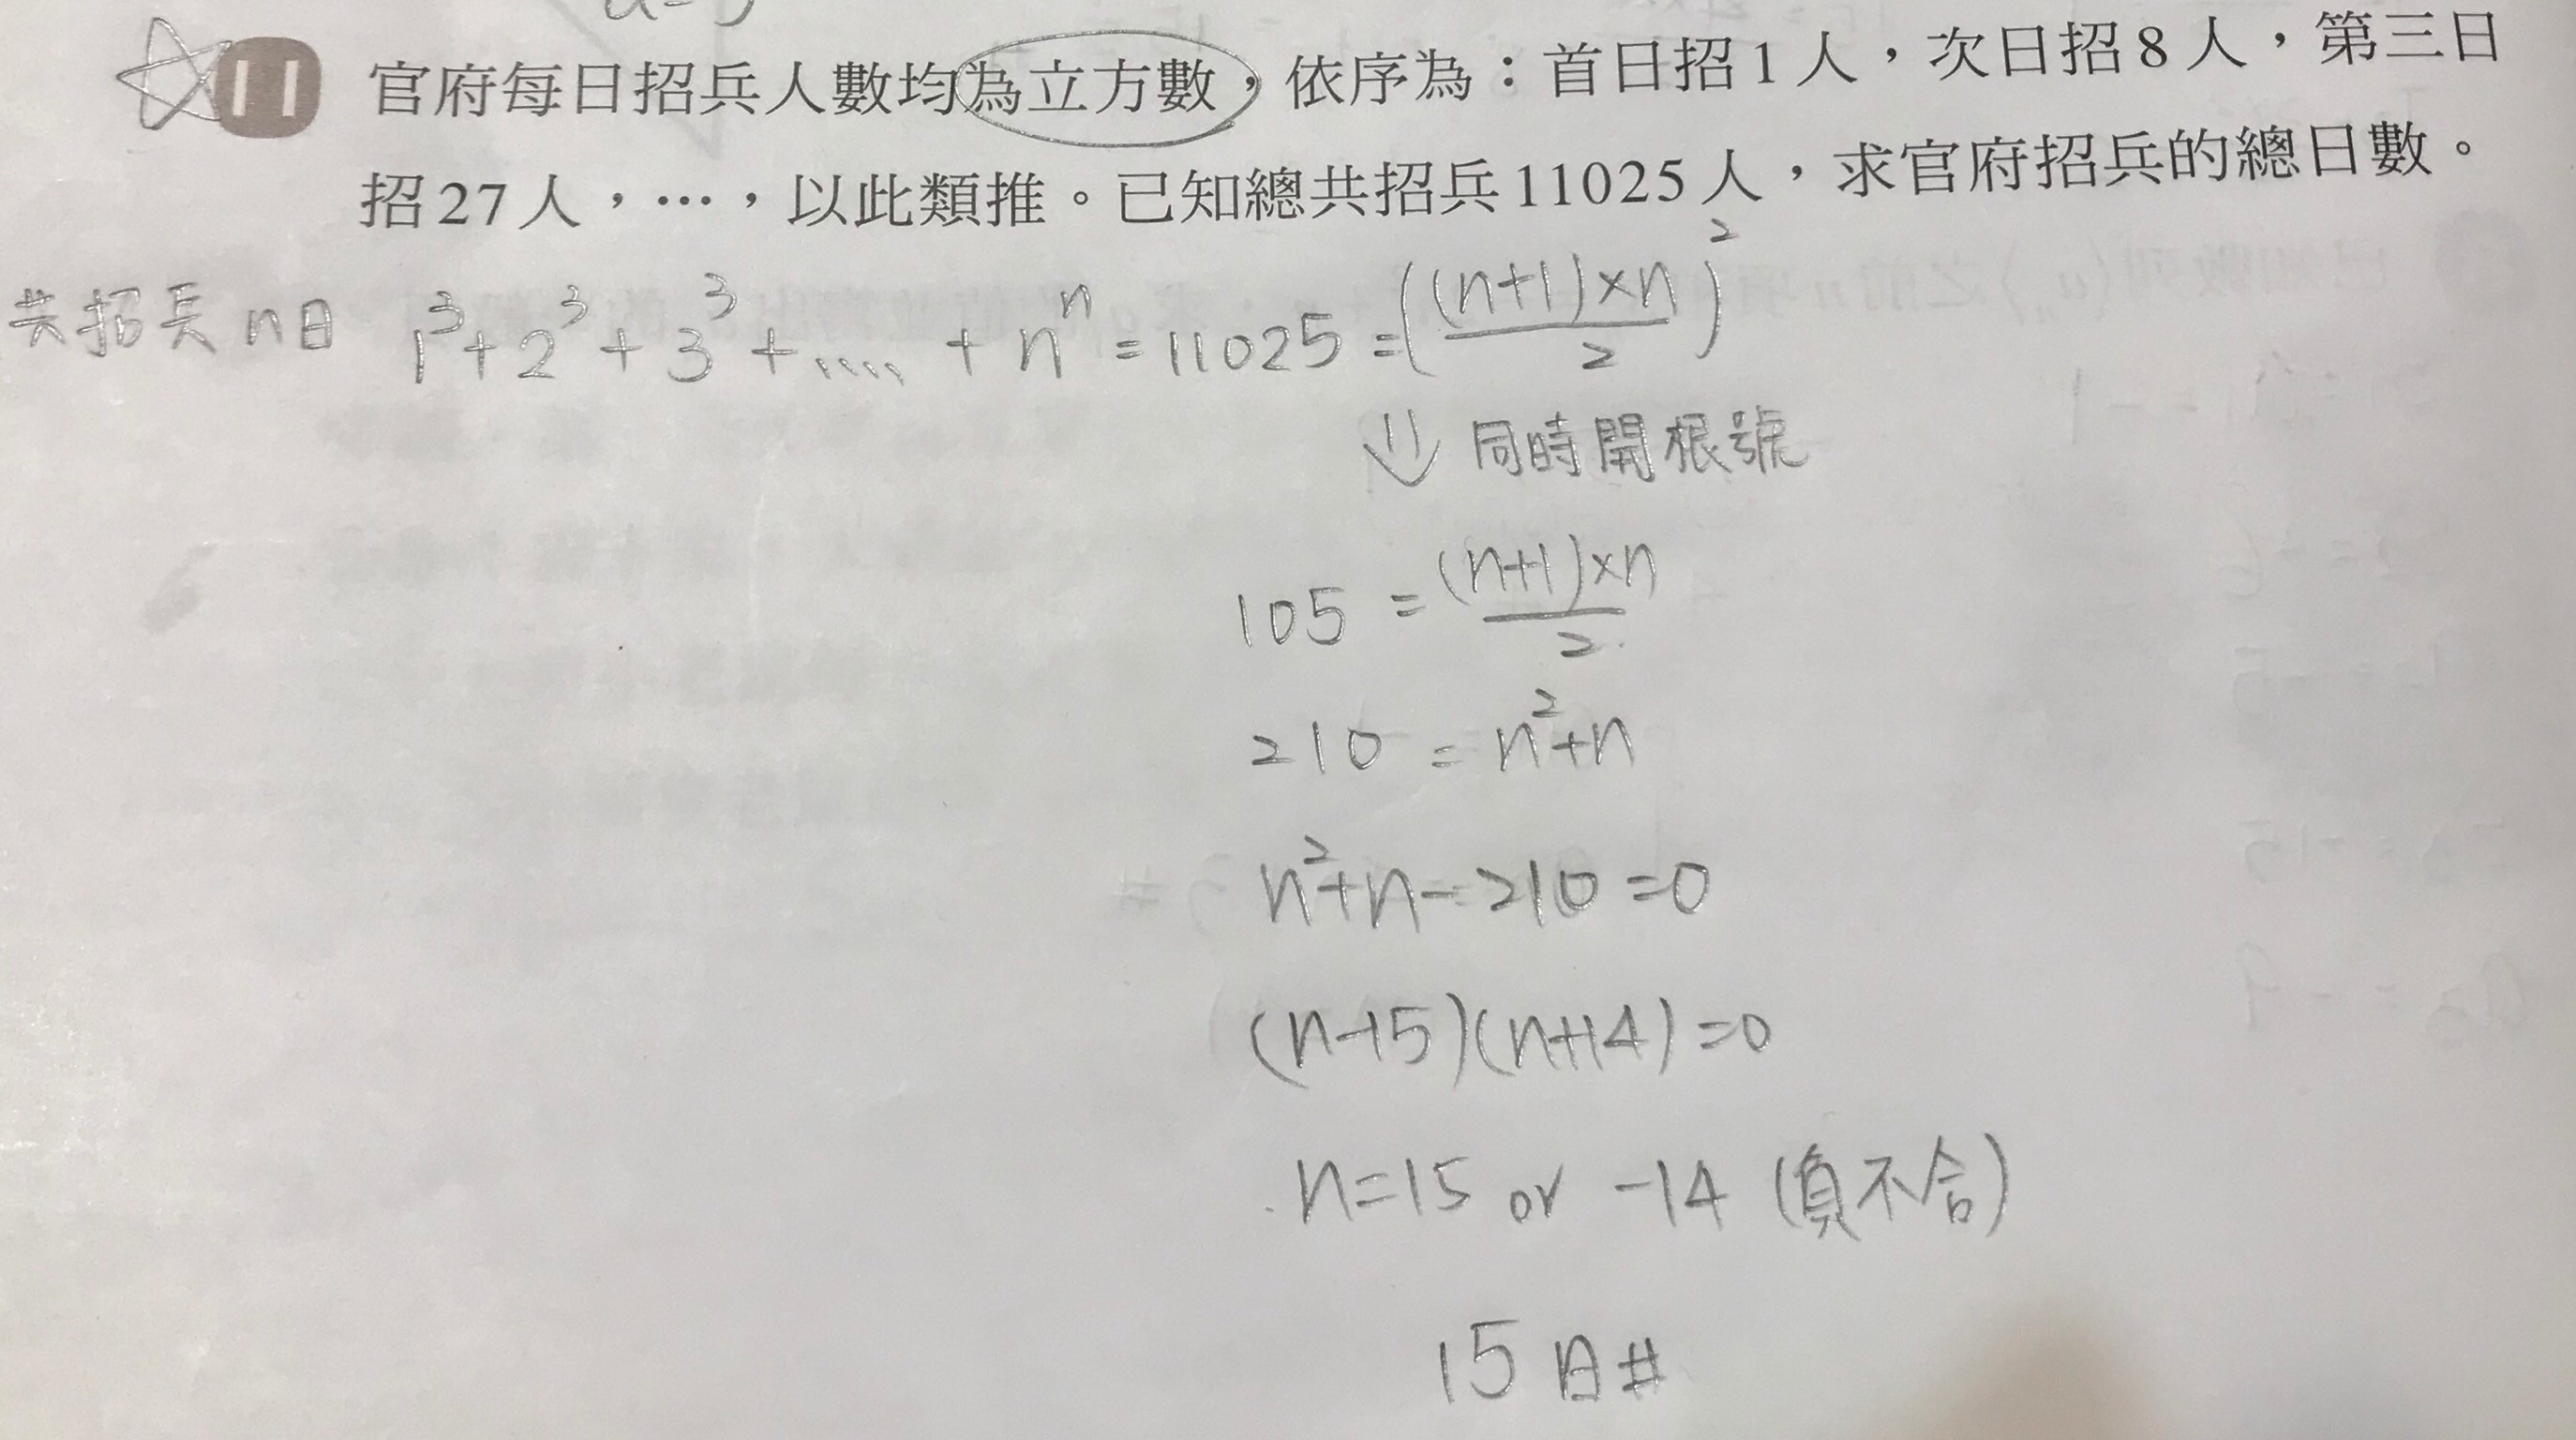 11 官府每日招兵人數均為立方數，依序為：首日招1人，次日招8人，第三日
招27人，…，以此類推。已知總共招兵11025人，求官府招兵的總日數。
共招兵n日 1³+2³+3³+....+nⁿ=11025=((n+1)×n/2)²
⇓ 同時開根號
105=(n+1)×n/2
210=n²+n
n²+n-210=0
(n-15)(n+14)=0
n=15 or -14 (負不合)
15日#